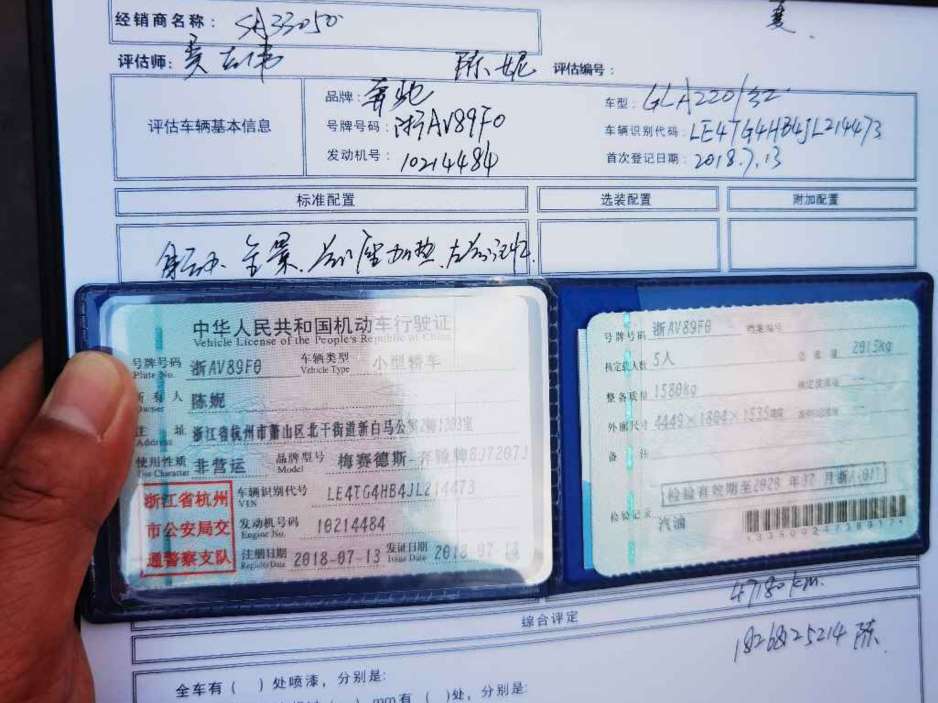 经销商名称: SA33050
评估师: 陈妮 评估编号:
评估车辆基本信息
品牌: 奔驰 车型: GLA220/
号牌号码: 浙AV89F0 车辆识别代码: LE4TG4HB4JL214473
发动机号: 10214484 首次登记日期: 2018.7.13
标准配置 选装配置 附加配置
全景
中华人民共和国机动车行驶证
Vehicle License of the People's Republic of China
号牌号码 浙AV89F0 车辆类型 小型轿车
Plate No. Vehicle Type
所有人 陈妮
Owner
住址 浙江省杭州市萧山区北干街道新白马公寓
Address
使用性质 非营运 品牌型号 梅赛德斯-奔驰牌
Use Character Model
浙江省杭州
市公安局交
通警察支队
车辆识别代号 LE4TG4HB4JL214473
VIN
发动机号码 10214484
Engine No.
注册日期 2018-07-13 发证日期 2018-07-13
Register Date Issue Date
号牌号码 浙AV89F0 档案编号
核定载人数 5人 总质量
整备质量 1580kg 核定载质量 --
外廓尺寸
备注
检验记录 汽油
综合评定
18268125214 陈
全车有( )处喷漆,分别是:
mm有( )处,分别是: